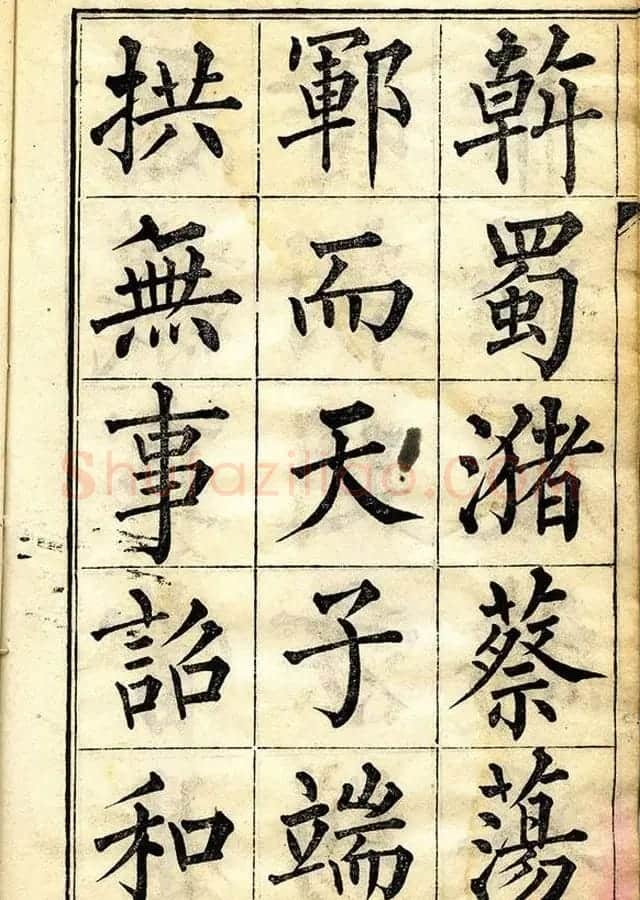 斡蜀潴蔡蕩
鄆而天子端
拱無事詔和
Shufaziliao.com